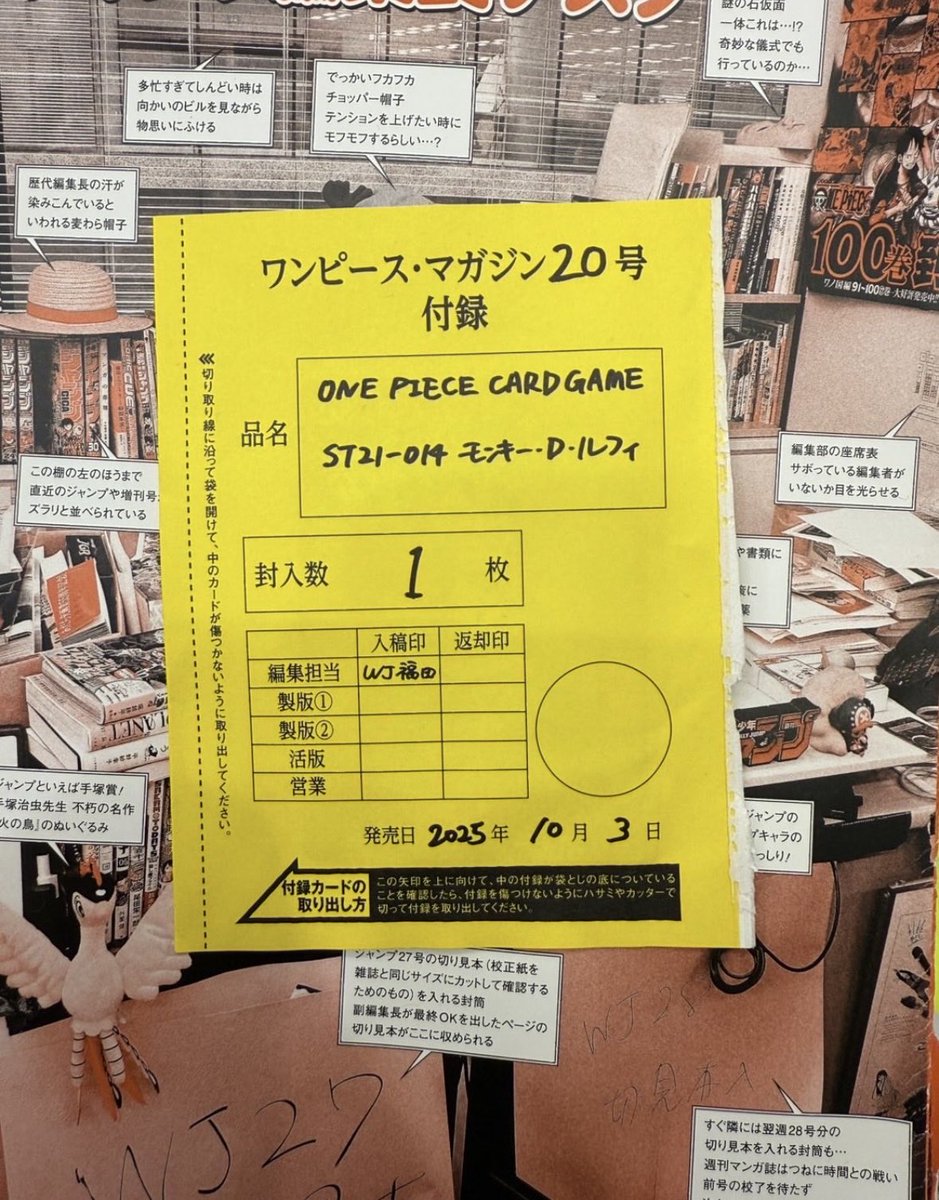 謎の石仮面
一体これは…!?
奇妙な儀式でも
行っているのか…
多忙すぎてしんどい時は
向かいのビルを見ながら
物思いにふける
でっかいフカフカ
チョッパー帽子
テンションを上げたい時に
モフモフするらしい…?
歴代編集長の汗が
染みこんでいると
いわれる麦わら帽子
ONE PIECE
100巻
ワノ国編 91~100巻
ワンピース・マガジン20号
付録
品名
ONE PIECE CARD GAME
ST21-014 モンキー・D・ルフィ
封入数 1 枚
入稿印 返却印
編集担当 WJ福田
製版①
製版②
活版
営業
発売日 2025年 10月 3日
付録カードの
取り出し方
この矢印を上に向けて、中の付録が袋とじの底についている
ことを確認したら、付録を傷つけないようにハサミやカッターで
切って付録を取り出してください。
《切り取り線に沿って袋を開けて、中のカードが傷つかないように取り出してください。
この棚の左のほうまで
直近のジャンプや増刊号
ズラリと並べられている
編集部の座席表
サボっている編集者が
いないか目を光らせる
や書類に
ジャンプといえば手塚賞!
手塚治虫先生 不朽の名作
火の鳥』のぬいぐるみ
ジャンプの
キャラの
っしり!
ジャンプ27号の切り見本(校正紙を
雑誌と同じサイズにカットして確認する
ためのもの)を入れる封筒
副編集長が最終OKを出したページの
切り見本がここに収められる
WJ27
WJ28
切見本入
すぐ隣には翌週28号分の
切り見本を入れる封筒も…
週刊マンガ誌はつねに時間との戦い
前号の校了を待たず